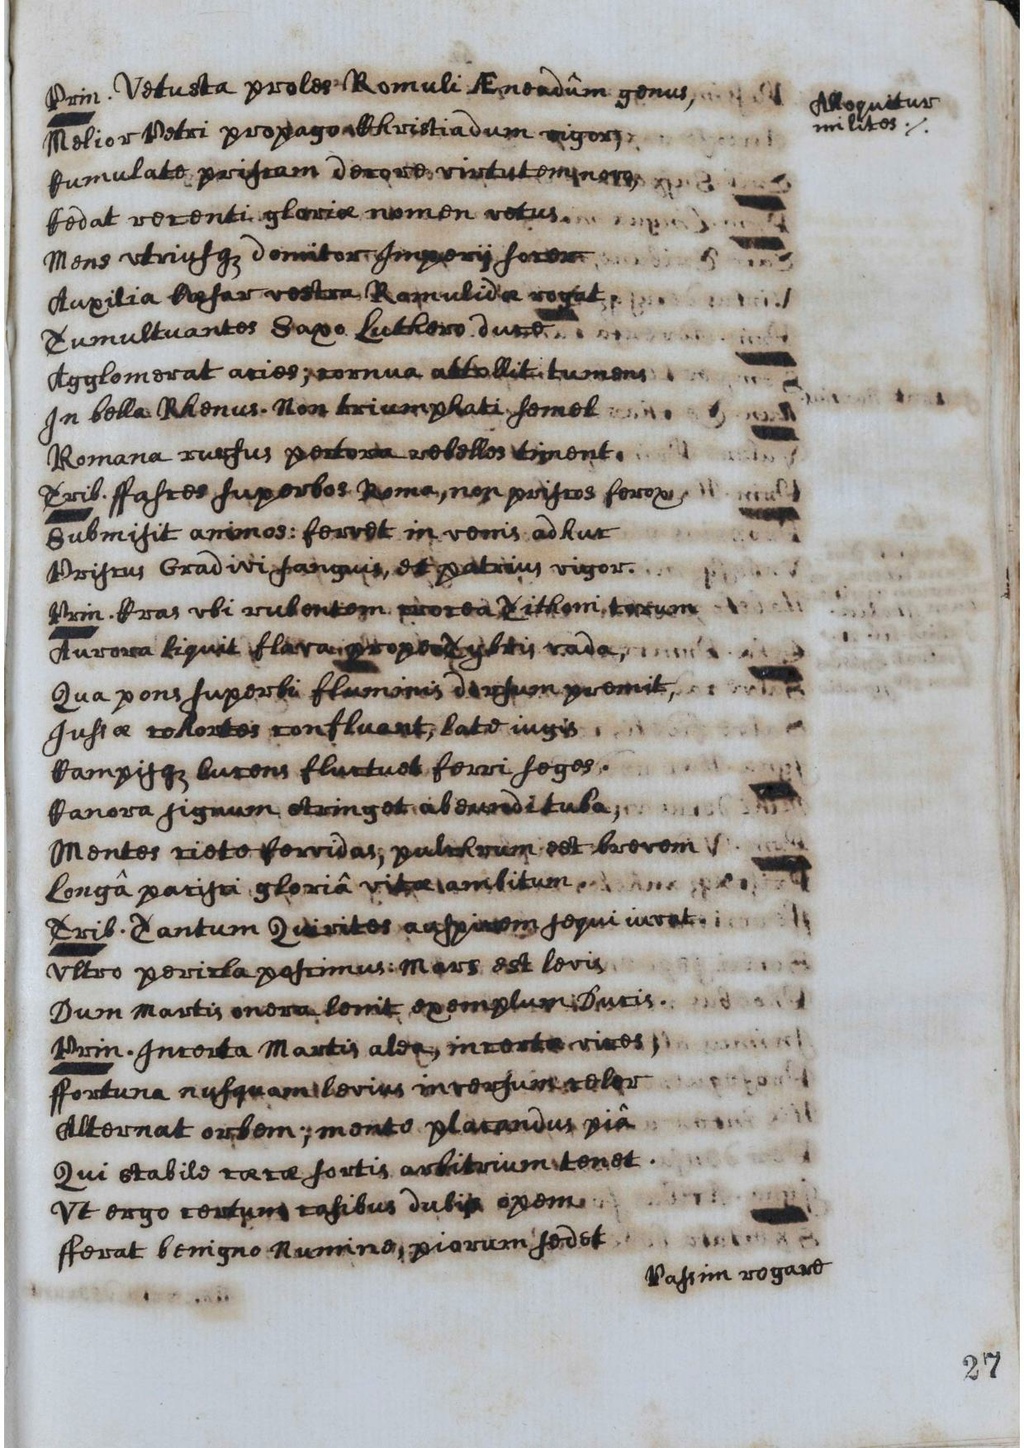 Prin. Vetusta proles Romuli Æneadûm genus,
Alloquitur
milites ./.
Melior Petri propago Christiadum vigor,
Cumulate priscam decore virtutem novo,
Cedat recenti gloriæ nomen vetus.
Mens vtriusq; domitor Imperij socer
Auxilia Cæsar vestra Romulidæ rogat
Tumultuantes Saxo Luthero duce
Agglomerat acies; cornua attollit tumens
In bella Rhenus. Non triumphati semel
Romana rursus pectora rebelles timent.
Trib. ffasces superbos Roma, non priscos ferox
Submisit animos: fervet in venis adhuc
Priscus Gradivi sanguis, et patrius vigor.
Prin. Cras vbi rubentem crocea Tithoni torum
Aurora liquit flava prope Tybris vada,
Qua pons superbi fluminis dorsum premit,
Jussæ cohortes confluant, late iugis
Campisq; lucens fluctuet ferri seges.
Canora signum stringet abeundi tuba,
Mentes ciete fervidas, pulchrum est brevem
Longâ pacisci gloriâ vitæ ambitum.
Trib. Tantum Quirites auspicem sequi iuvat.
Vltro pericla poscimus: Mars est levis
Dum Martis onera lenit exemplum Ducis.
Prin. Incerta Martis alea, incertæ vices,
ffortuna nusquam levius inversum celer
Alternat orbem; mente placandus piâ
Qui stabile cæcæ sortis arbitrium tenet.
Vt ergo certam casibus dubijs opem
fferat benigno Numine, piorum sedet
Passim rogare
27